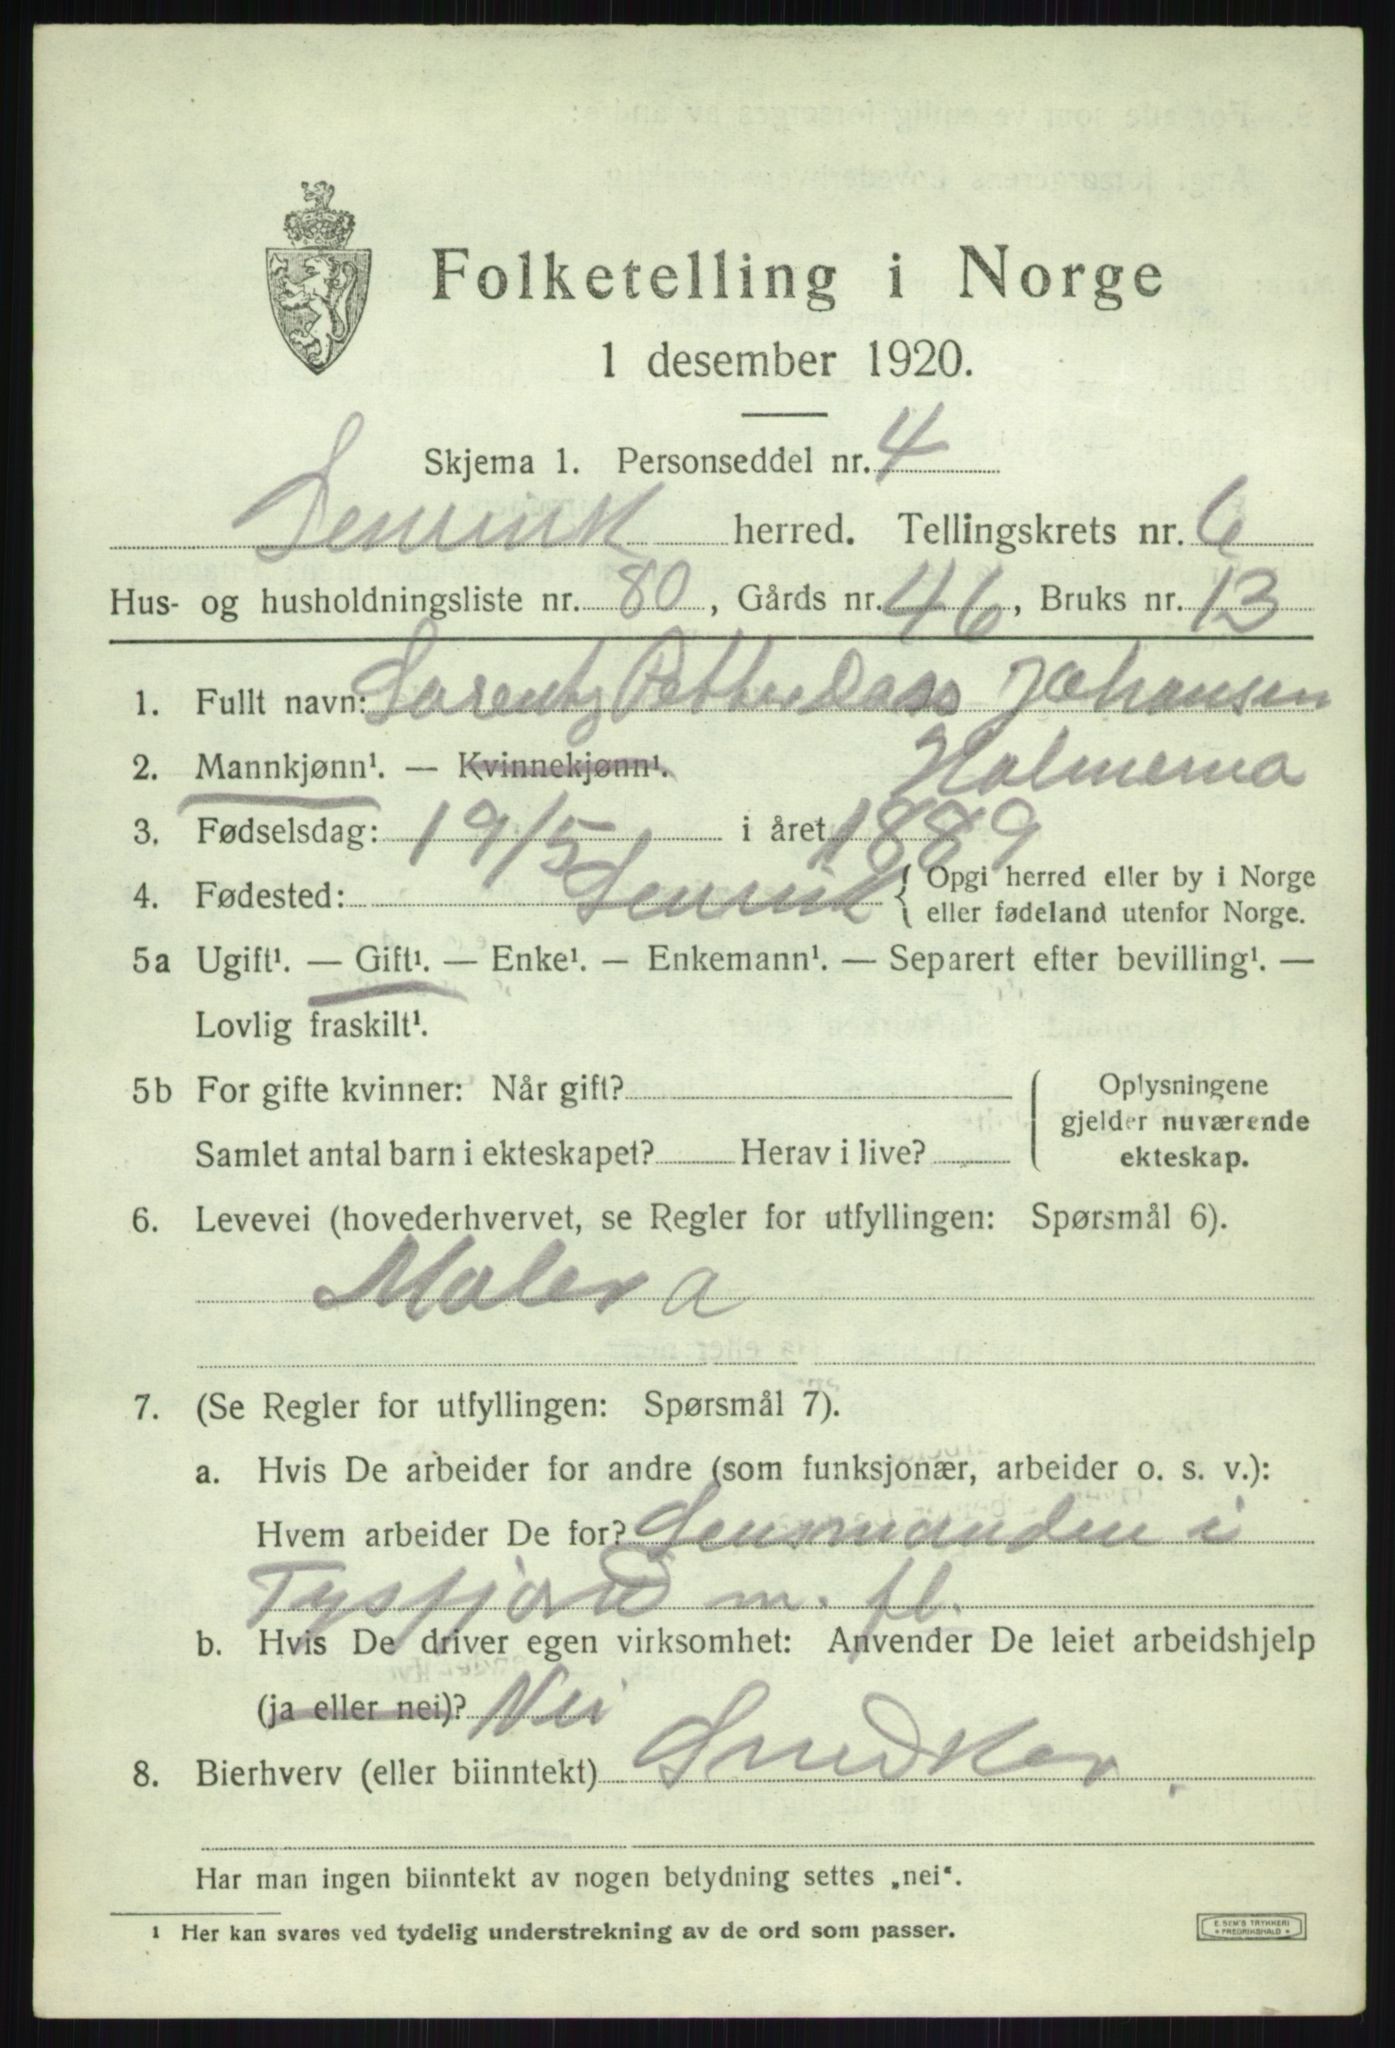 Folketelling i Norge
1 desember 1920.
Skjema 1. Personseddel nr. 4
Lenvik herred. Tellingskrets nr. 6
Hus- og husholdningsliste nr. 80, Gårds nr. 46, Bruks nr. 13
1. Fullt navn: Lorentz Petter Dass Johansen
2. Mannkjønn¹. — Kvinnekjønn¹.
3. Fødselsdag: 19/5 i året 1889
4. Fødested: Lenvik { Opgi herred eller by i Norge
eller fødeland utenfor Norge.
5a Ugift¹. — Gift¹. — Enke¹. — Enkemann¹. — Separert efter bevilling¹. —
Lovlig fraskilt¹.
5b For gifte kvinner: Når gift? Oplysningene
gjelder nuværende
Samlet antal barn i ekteskapet? Herav i live? ekteskap.
6. Levevei (hovederhvervet, se Regler for utfyllingen: Spørsmål 6).
Maler a
7. (Se Regler for utfyllingen: Spørsmål 7).
a. Hvis De arbeider for andre (som funksjonær, arbeider o. s. v.):
Hvem arbeider De for? Lensmanden i
Tysfjord m. fl.
b. Hvis De driver egen virksomhet: Anvender De leiet arbeidshjelp
(ja eller nei)? Nei
8. Bierhverv (eller biinntekt) Snedker.
Har man ingen biinntekt av nogen betydning settes „nei“.
¹ Her kan svares ved tydelig understrekning av de ord som passer.
E. SEM'S TRYKKERI
FREDRIKSHALD